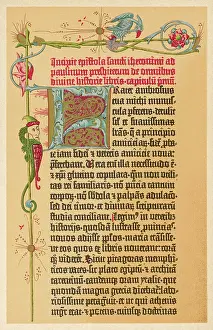 Incipit epistola sancti iheronimi ad
paulinum presbiterum de omnibus
divine historie libris capitulum primū.
Frater ambrosius
tua michi munuscula
perferens detulit
simul et suavissimas
trās q̄ a principio
amiciciar̄
fidei et veteris amicicie
Vera em̄ illa necessitudo ē
et xp̄i glutino copulata qm̄ non utilitas
rei familiaris nō presentia tantum
corporum nō subdola et palpās adulatio
sed dei timor et divinarum scripturarum
studia conciliant Legim⁹ in veteribus
historijs quosdā lustrasse provincias
novos adijsse pplos maria transisse
ut eos quos ex libris noverant coram
viderent Sicut pitagoras memphiticos
vates sic plato egiptū et architam
tarentinum eandemqȝ oram ytalie que
quondā magna grecia dicebat
laboriosissime peragrauit et ut qui athenis
mgr̄ erat et potens cuiusqȝ doctrinas